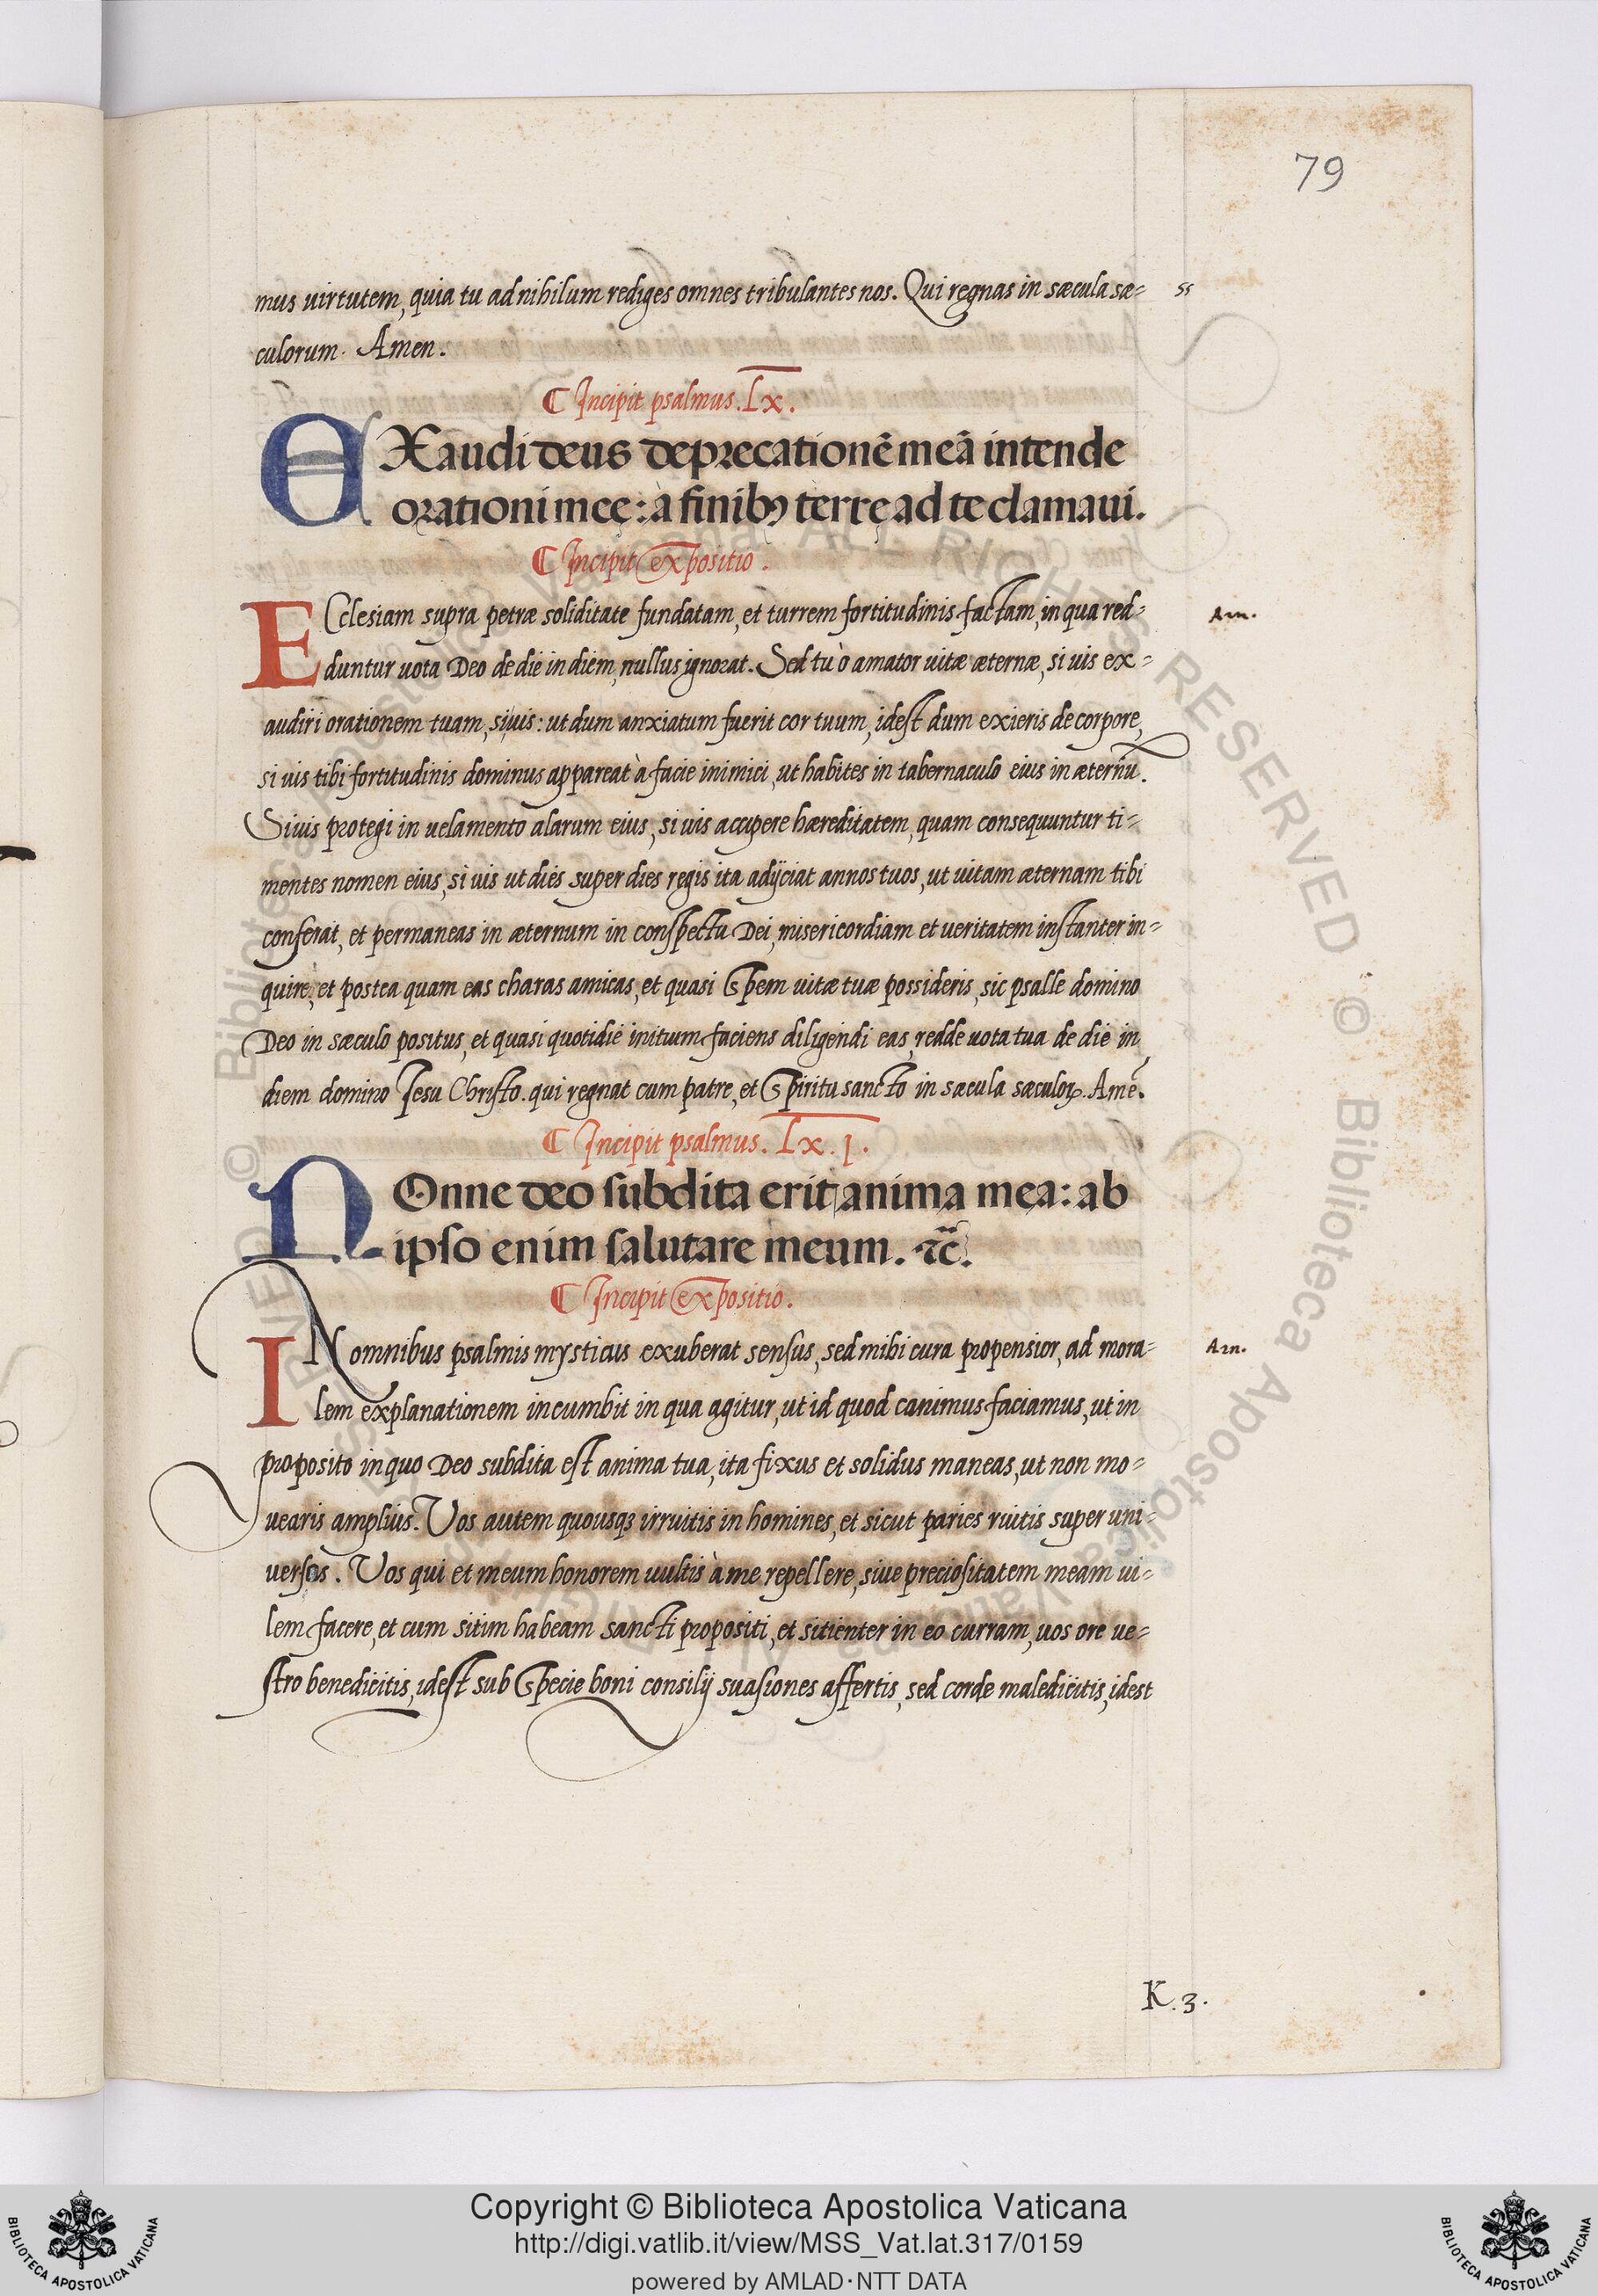 79
mus virtutem, quia tu ad nihilum rediges omnes tribulantes nos. Qui regnas in sæcula sæ= ss
culorum. Amen.
Incipit psalmus. Lx.
EXaudi deus deprecationē meā intende
orationi meę: à finibꝰ terrę ad te clamaui.
Incipit expositio.
ECclesiam supra petræ soliditate fundatam, et turrem fortitudinis factam, in qua red= Arn.
duntur uota Deo de die in diem, nullus ignorat. Sed tu ò amator uitæ æternæ, si uis ex=
audiri orationem tuam, si uis: ut dum anxiatum fuerit cor tuum, idest dum exieris de corpore,
si uis tibi fortitudinis dominus appareat à facie inimici, ut habites in tabernaculo eius in æternū.
Si uis protegi in uelamento alarum eius, si uis accipere hæreditatem, quam consequuntur ti=
mentes nomen eius, si uis ut dies super dies regis ita adijciat annos tuos, ut uitam æternam tibi
conferat, et permaneas in æternum in conspectu Dei, misericordiam et ueritatem instanter in=
quire, et postea quam eas charas amicas, et quasi spem uitæ tuæ possideris, sic psalle domino
Deo in sæculo positus, et quasi quotidie initium faciens diligendi eas, redde uota tua de die in
diem domino Jesu Christo. qui regnat cum patre, et spiritu sancto in sæcula sæculoꝝ. Amē.
Incipit psalmus. Lx.I.
NOnne deo subdita erit anima mea: ab
ipso enim salutare meum. ⁊c̄.
Incipit expositio.
IN omnibus psalmis mysticus exuberat sensus, sed mihi cura propensior, ad mora= Arn.
lem explanationem incumbit in qua agitur, ut id quod canimus faciamus, ut in
proposito in quo Deo subdita est anima tua, ita fixus et solidus maneas, ut non mo=
uearis amplius. Vos autem quousqꝫ irruitis in homines, et sicut paries ruitis super uni=
uersos. Vos qui et meum honorem uultis à me repellere, siue preciositatem meam ui=
lem facere, et cum sitim habeam sancti propositi, et sitienter in eo curram, uos ore ue=
stro benedicitis, idest sub specie boni consilij suasiones affertis, sed corde maledicitis, idest
K.3.
© Biblioteca Apostolica Vaticana ALL RIGHTS RESERVED
© Biblioteca Apostolica Vaticana ALL RIGHTS RESERVED
Copyright © Biblioteca Apostolica Vaticana
http://digi.vatlib.it/view/MSS_Vat.lat.317/0159
powered by AMLAD·NTT DATA
BIBLIOTECA APOSTOLICA VATICANA
BIBLIOTECA APOSTOLICA VATICANA